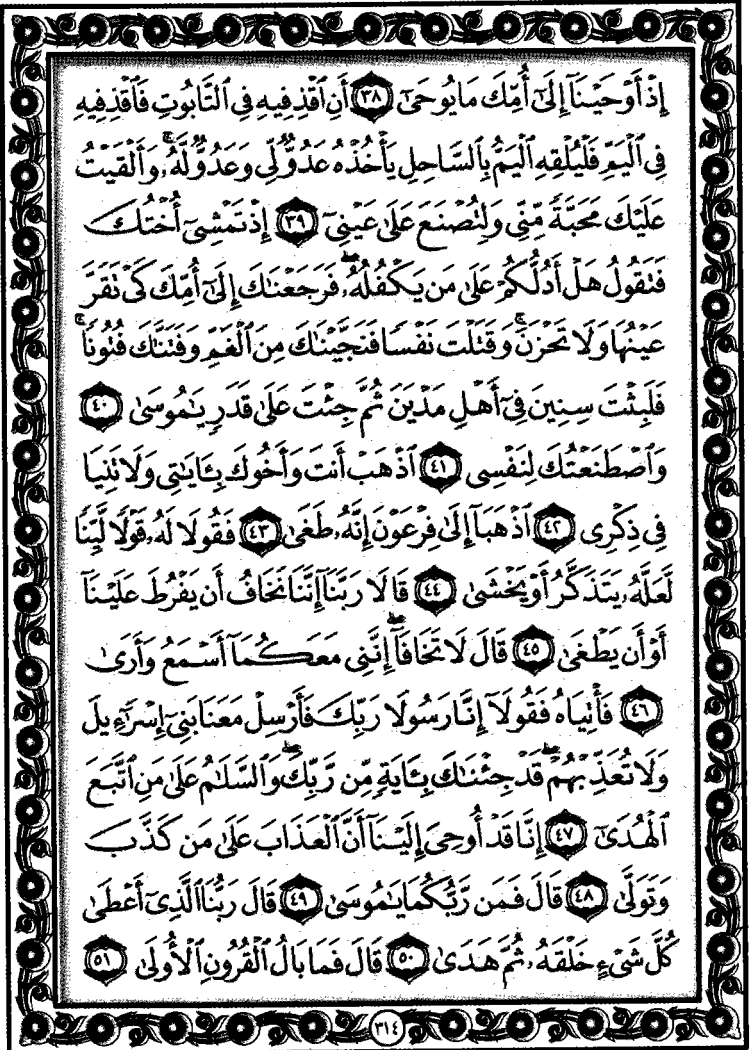 إِذْ أَوْحَيْنَآ إِلَىٰٓ أُمِّكَ مَا يُوحَىٰٓ ٣٨ أَنِ ٱقْذِفِيهِ فِى ٱلتَّابُوتِ فَٱقْذِفِيهِ
فِى ٱلْيَمِّ فَلْيُلْقِهِ ٱلْيَمُّ بِٱلسَّاحِلِ يَأْخُذْهُ عَدُوٌّ لِّى وَعَدُوٌّ لَّهُۥۚ وَأَلْقَيْتُ
عَلَيْكَ مَحَبَّةً مِّنِّى وَلِتُصْنَعَ عَلَىٰ عَيْنِىٓ ٣٩ إِذْ تَمْشِىٓ أُخْتُكَ
فَتَقُولُ هَلْ أَدُلُّكُمْ عَلَىٰ مَن يَكْفُلُهُۥۖ فَرَجَعْنَٰكَ إِلَىٰٓ أُمِّكَ كَىْ تَقَرَّ
عَيْنُهَا وَلَا تَحْزَنَۚ وَقَتَلْتَ نَفْسًا فَنَجَّيْنَٰكَ مِنَ ٱلْغَمِّ وَفَتَنَّٰكَ فُتُونًاۚ
فَلَبِثْتَ سِنِينَ فِىٓ أَهْلِ مَدْيَنَ ثُمَّ جِئْتَ عَلَىٰ قَدَرٍ يَٰمُوسَىٰ ٤٠
وَٱصْطَنَعْتُكَ لِنَفْسِى ٤١ ٱذْهَبْ أَنتَ وَأَخُوكَ بِـَٔايَٰتِى وَلَا تَنِيَا
فِى ذِكْرِى ٤٢ ٱذْهَبَآ إِلَىٰ فِرْعَوْنَ إِنَّهُۥ طَغَىٰ ٤٣ فَقُولَا لَهُۥ قَوْلًا لَّيِّنًا
لَّعَلَّهُۥ يَتَذَكَّرُ أَوْ يَخْشَىٰ ٤٤ قَالَا رَبَّنَآ إِنَّنَا نَخَافُ أَن يَفْرُطَ عَلَيْنَآ
أَوْ أَن يَطْغَىٰ ٤٥ قَالَ لَا تَخَافَآۖ إِنَّنِى مَعَكُمَآ أَسْمَعُ وَأَرَىٰ
٤٦ فَأْتِيَاهُ فَقُولَآ إِنَّا رَسُولَا رَبِّكَ فَأَرْسِلْ مَعَنَا بَنِىٓ إِسْرَٰٓءِيلَ
وَلَا تُعَذِّبْهُمْۖ قَدْ جِئْنَٰكَ بِـَٔايَةٍ مِّن رَّبِّكَۖ وَٱلسَّلَٰمُ عَلَىٰ مَنِ ٱتَّبَعَ
ٱلْهُدَىٰٓ ٤٧ إِنَّا قَدْ أُوحِىَ إِلَيْنَآ أَنَّ ٱلْعَذَابَ عَلَىٰ مَن كَذَّبَ
وَتَوَلَّىٰ ٤٨ قَالَ فَمَن رَّبُّكُمَا يَٰمُوسَىٰ ٤٩ قَالَ رَبُّنَا ٱلَّذِىٓ أَعْطَىٰ
كُلَّ شَىْءٍ خَلْقَهُۥ ثُمَّ هَدَىٰ ٥٠ قَالَ فَمَا بَالُ ٱلْقُرُونِ ٱلْأُولَىٰ ٥١
٣١٤